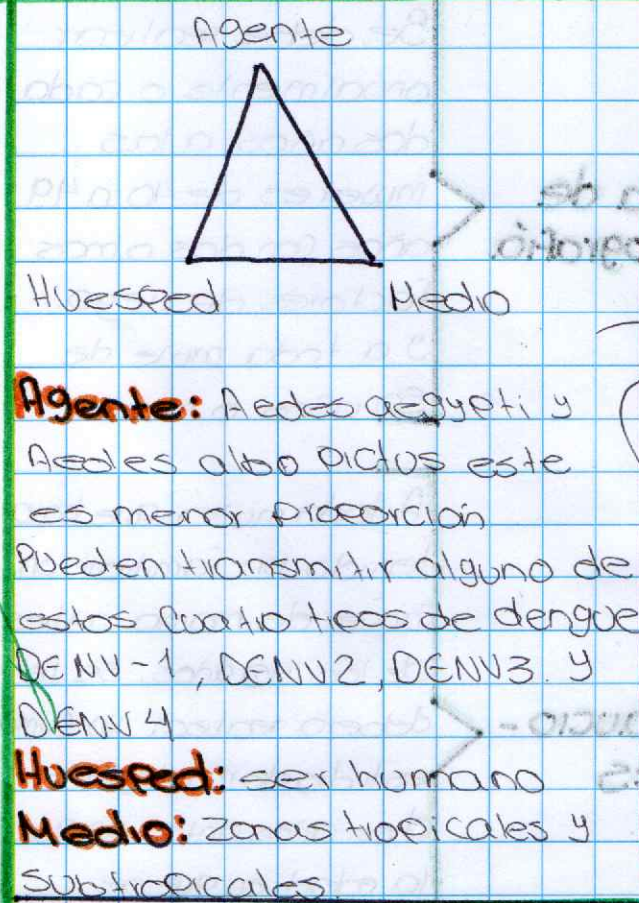 Agente
Huesped Medio
Agente: Aedes aegypti y
Aedes albo pictus este
es menor proporción
Pueden transmitir alguno de
estos cuatro tipos de dengue
DENV-1, DENV2, DENV3. y
DENV 4
Huesped: ser humano
Medio: zonas tropicales y
subtropicales.